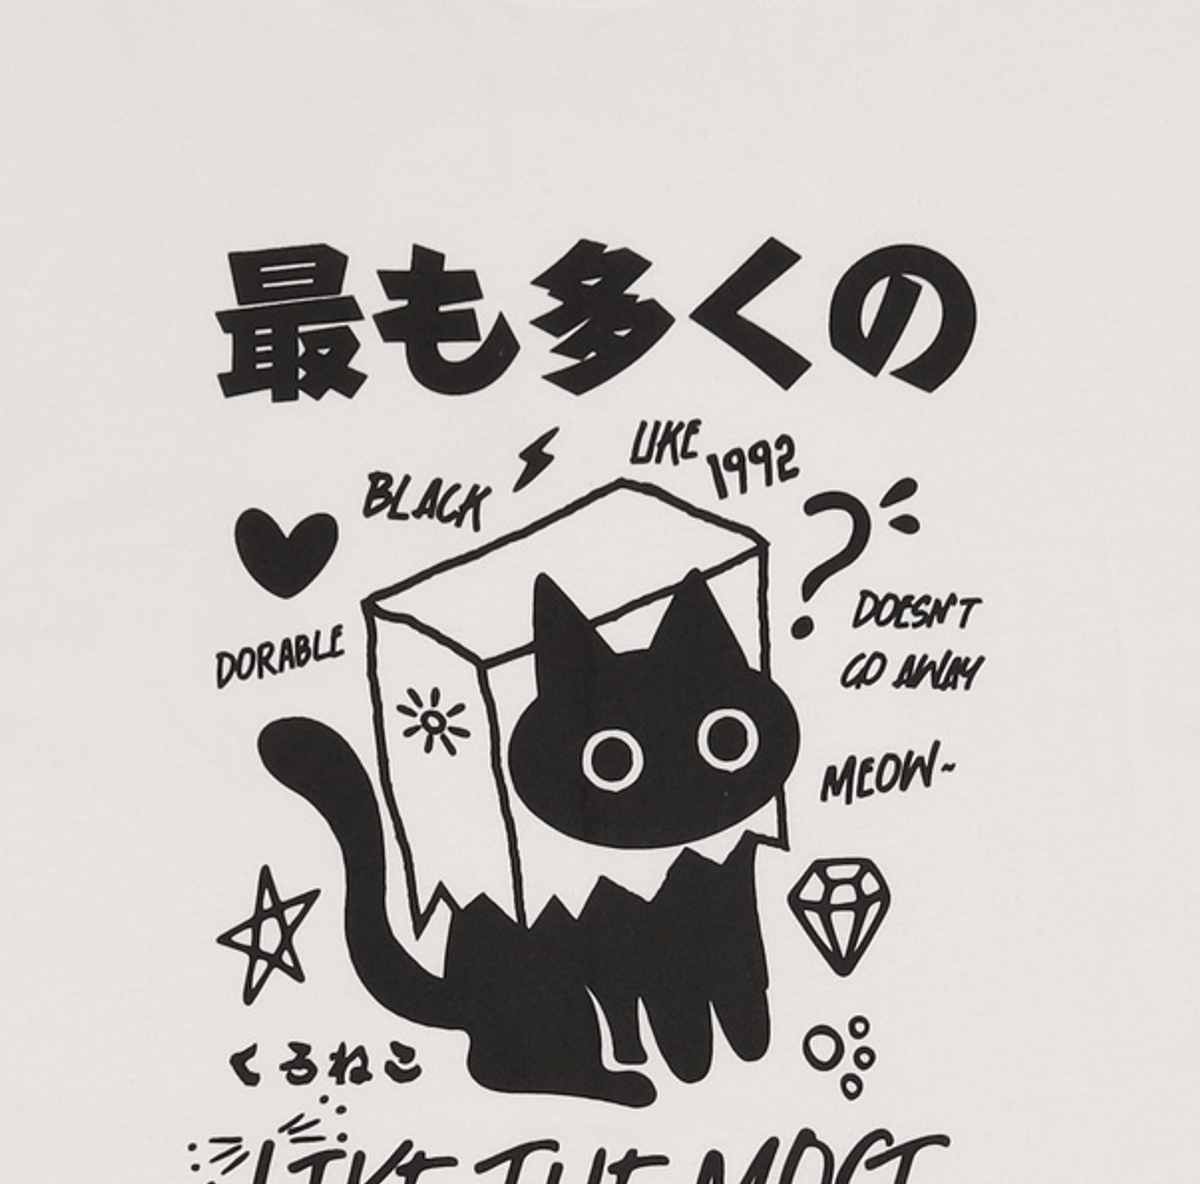 最も多くの
BLACK
LIKE
1992
DORABLE
DOESN'T
GO AWAY
MEOW~
くろねこ
LIKE THE MOST